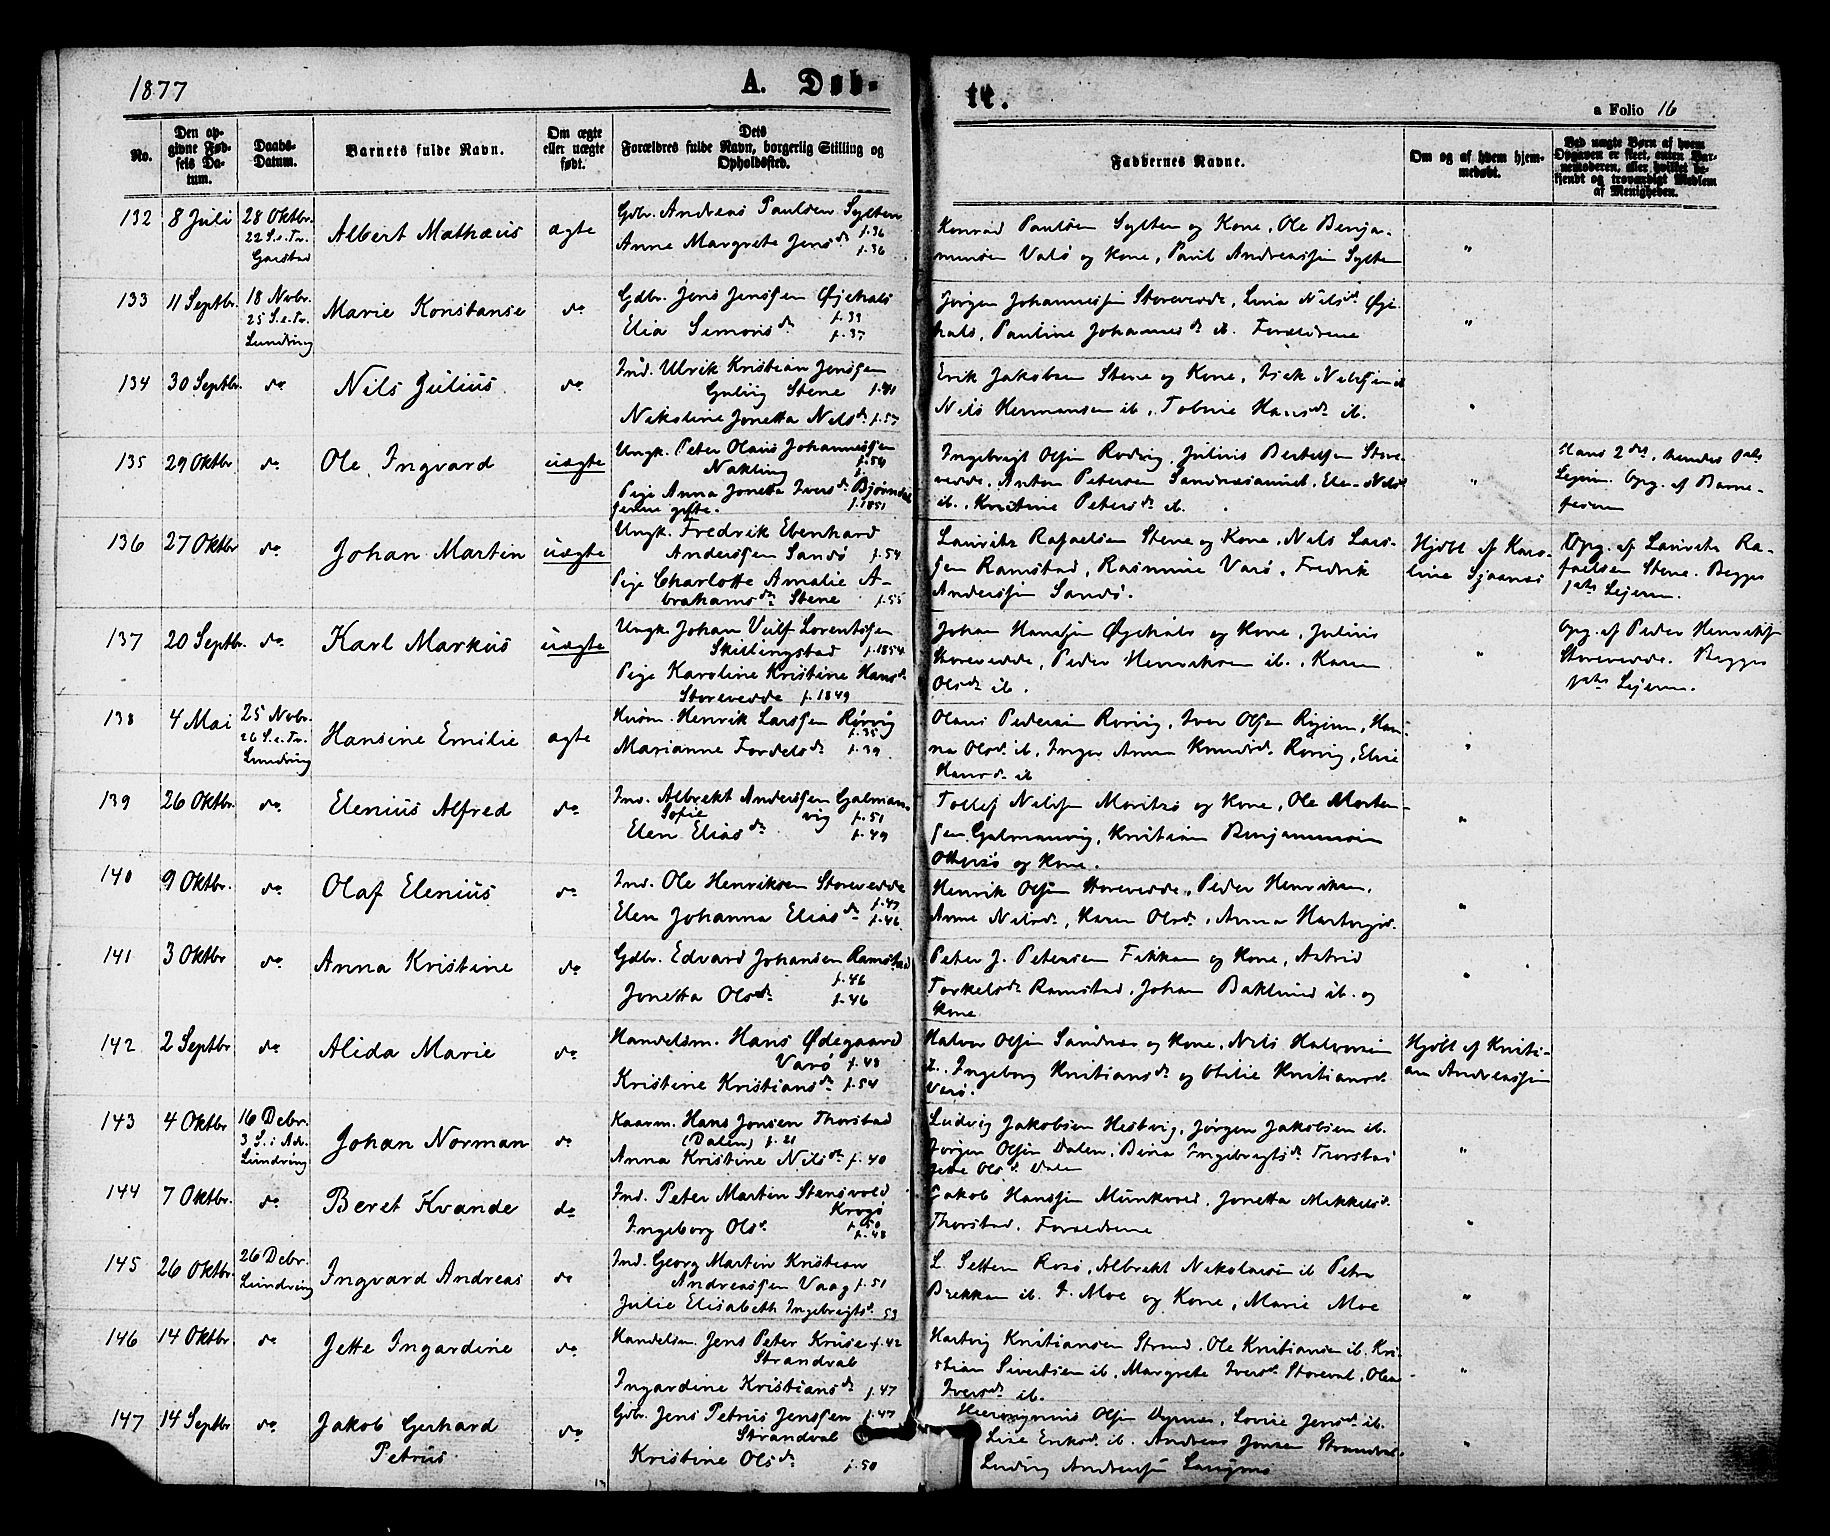 1877
A. Døb-
te.
a Folio 16
No.
Den opgivne Fødsels Datum.
Daabs-Datum.
Barnets fulde Navn.
Om ægte eller uægte født.
Dets Forældres fulde Navn, borgerlig Stilling og Opholdssted.
Faddernes Navne.
Om og af hvem hjemmedøbt.
Ved uægte Børn af hvem Opgaven er skeet, enten Barnemoderen, eller hvilket bekjendt og troværdigt Medlem af Menigheden.
132 8 Juli 28 Oktbr. 22 S.e.Tr. Garstad Albert Mathæus ægte
Gdbr. Andreas Paulsen Sylten f.36
Anne Margrete Jensdr f.36
Konrad Paulsen Sylten og Kone, Ole Benja-
minsen Valø og Kone, Paul Andreassen Sylten
133 11 Septbr. 18 Novbr. 25 S.e.Tr. Lundring Marie Konstanse do
Gdbr. Jens Jenssen Øjehals f.39
Elia Simonsdr f.37
Jørgen Johannessen Storevedde, Lina Nilsdr Øje-
hals, Pauline Johannesdr ib. Forældrene
134 30 Septbr. do Nils Julius do
Ind. Ulrik Kristian Jenssen
Gulvig Stene f.41
Nikoline Jonetta Nilsdr f.57
Erik Jakobsen Stene og Kone, Isak Nilssen ib
Nils Hermansen ib, Tobine Hansdr ib.
135 29 Oktbr do Ole Ingvard uægte
Ungk. Peter Olaus Johannessen
Nakling f.54
Pige Anna Jonetta Iversdr Bjørndal
f.1851
Ingebrigt Olsen Rodvig, Julius Bertelsen Store-
vedde, Anton Petersen Sandnæsaunet, Elen Nilsd
ib, Kristine Petersdr ib.
Hans 2det, hendes 1ste
Lejerm. Opg. af Barne-
faderen
136 27 Oktbr do Johan Martin uægte
Ungk. Fredrik Ebenhard
Anderssen Sandø f.54
Pige Charlotte Amalie A-
brahamsdr Stene f.55
Lauritz Rafaelsen Stene og Kone, Nils Lars-
sen Ramstad, Rasmine Varø, Fredrik
Anderssen Sandø.
Hjdbt af Karo-
line
Opg. af Lauritz Ra-
faelsen Stene. Begges
1ste Lejerm.
137 20 Septbr. do Karl Markus uægte
Ungk. Johan Veilf Lorentssen
Skillingstad f.1854
Pige Karoline Kristine Hansd.
Storevedde f.1849
Johan Hanssen Øjehals og Kone, Julius
Storevedde, Peder Henriksen ib. Karen
Olsdr ib.
Opg. af Peder Henriksen
Storevedde. Begges
1ste Lejerm.
138 4 Mai 25 Novbr. 26 S.e.Tr. Lundring Hansine Emilie ægte
Husm. Henrik Larssen Rørvig f.35
Marianne Tordelsdr f.39
Olaus Pedersen Rørvig, Iver Olsen Ryjem, Han-
na Olsdr ib, Inger Anna Knudsdr Rørvig, Elise
Hansdr ib
139 26 Oktbr. do Elenius Alfred do
Ind. Albrekt Anderssen Galman-
vig f.51
Elen Sofie Eliasdr f.49
Tollef Nilssen Moritsø og Kone, Ole Morten-
sen Galmanvig, Kristian Benjaminsen
Ottersø og Kone.
140 9 Oktbr. do Olaf Elenius do
Ind. Ole Henriksen Storevedde f.49
Elen Johanna Eliasdr f.46
Henrik Olsen Storevedde, Peder Henriksen,
Anne Nilsdr, Karen Olsdr, Anna Hartvigsd.
141 3 Oktbr do Anna Kristine do
Gdbr. Edvard Johansen Ramstad f.46
Jonetta Olsdr f.46
Peter J. Petersen Fikkan og Kone, Astrid
Torkelsdr Ramstad, Johan Baklund ib. og
Kone
142 2 Septbr do Alida Marie do
Handelsm. Hans Ødegaard
Varø f.48
Kristine Kristiansdr f.54
Halvor Olsen Sandnæs og Kone, Nils Halvorsen
ib., Ingeborg Kristiansdr og Otilie Kristiansdr
Varø.
Hjdbt af Kristi-
an Andreassen
143 4 Oktbr 16 Debr. 3 S. i Adv. Lundring Johan Norman do
Kaarm. Hans Jonsen Thorstad
(Dalen) f.21
Anna Kristine Nilsdr f.40
Ludvig Jakobsen Hestvig, Jørgen Jakobsen ib.
Jørgen Olsen Dalen, Beria Ingebrigtsdr Thorstad
Jette Olsdr Dalen
144 7 Oktbr. do Beret Kvande do
Ind. Peter Martin Stensvold
Krogø f.50
Ingeborg Olsd. f.48
Jakob Hanssen Munkvold, Jonetta Mikkelsd.
Thorstad, Forældrene
145 26 Oktbr. 26 Debr. Lundring Ingvard Andreas do
Ind. Georg Martin Kristian
Andreassen Vaag f.51
Julie Elisabeth Ingebrigtsd. 53
L. Setten Rosø, Albrekt Nikolaisen ib Petra
Brekkan ib. J. Moe og Kone, Marie Moe
146 14 Oktbr. do Jette Ingardine do
Handelsm. Jens Peter Kruse f.42
Strandval
Ingardine Kristiansdr f.47
Hartvig Kristiansen Strand, Ole Kristiansen ib. Kri-
stian Sivertsen ib, Margrete Iversdr Storeval, Olea
Iversdr ib.
147 14 Septbr do Jakob Gerhard Petrus do
Gdbr. Jens Petrus Jenssen f.47
Strandval
Kristine Olsdr f.50
Hieronymus Olsen Dypnæs, Lovise Jensdr ib.
Lise Eriksd. ib. Andreas Jonsen Strandval
Ludvig Andreassen